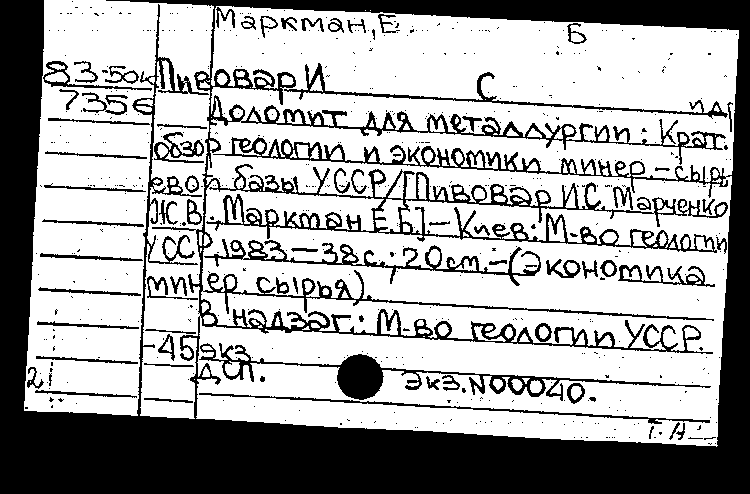 Маркман, Е. Б
83-50к Пивовар, И С
7356 Доломит для металлургии: Крат.
обзор геологии и экономики минер.-сырь
евой базы УССР/[Пивовар И.С., Марченко
Ж.В., Маркман Е.Б.].-Киев: М-во геологии
УССР, 1983.-38с.; 20см.-(Экономика
минер. сырья).
В надзаг.: М-во геологии УССР.
-45 экз.
2 ДСП. экз. N00040.
Т. Н